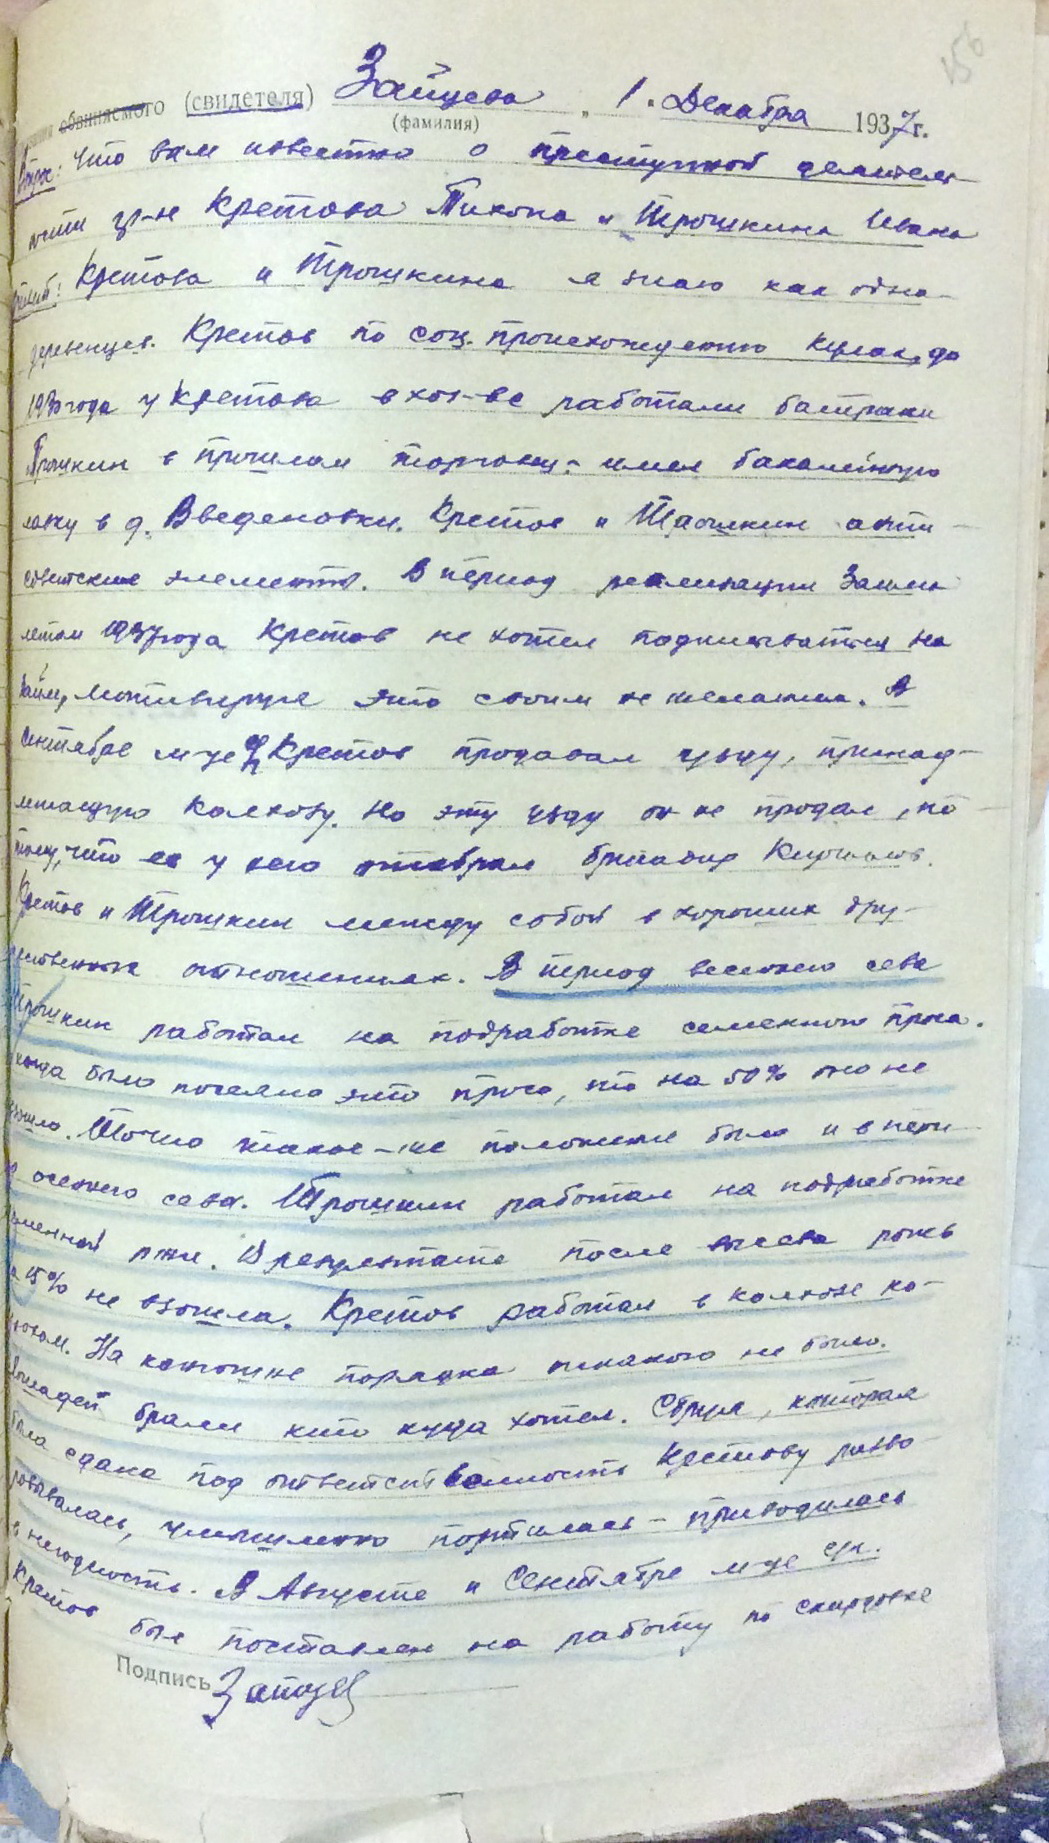 156
обвиняемого (свидетеля) Зайцева „ 1. Декабря 1937 г.
(фамилия)
Вопрос: Что вам известно о преступной деятель-
ности гр-н Кретова Тихона и Трошкина Ивана
Ответ: Кретова и Трошкина я знаю как одно-
деревенцев. Кретов по соц. происхождению кулак, до
1930 года у Кретова в хоз-ве работали батраки
Трошкин в прошлом торговец: имел бакалейную
лавку в д. Введеновки. Кретов и Трошкин анти-
советские элементы. В период реализации Займа
летом 1937 года Кретов не хотел подписываться на
Займ, мотивируя это своим не желанием. В
Сентябре м-це Кретов продавал узду, принад-
лежащую колхозу. Но эту узду он не продал, по-
тому, что ее у него отобрал бригадир
Кретов и Трошкин между собой в хороших дру-
жественных отношениях. В период весеннего сева
Трошкин работал на подработке семенного проса.
Когда было посеяно это просо, то на 50% оно не
взошло. Точно такое-же положение было и в пери-
од осеннего сева. Трошкин работал на подработке
семенной ржи. В результате после высева рожь
на 15% не взошла. Кретов работал в колхозе ко-
нюхом. На конюшне порядка никакого не было.
Лошадей брали кто куда хотел. Сбруя, которая
была сдана под ответственность Кретову разво-
ровывалась, умышленно портилась - приводилась
в негодность. В Августе и Сентябре м-це с/г.
Кретов был поставлен на работу по скирдовке
Подпись Зайцев